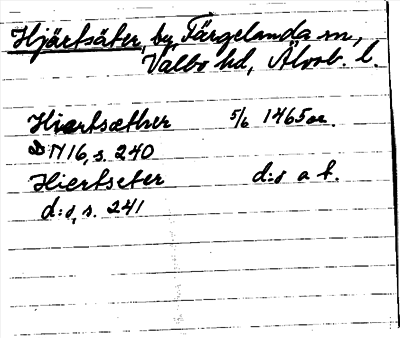 Hjärtsäter, by, Färgelanda sn,
Valbo hd, Älvsb. l.
Hiertsæther 5/6 1465 or.
DN 16, s. 240
Hiertseter d:o a f.
d:o, s. 241